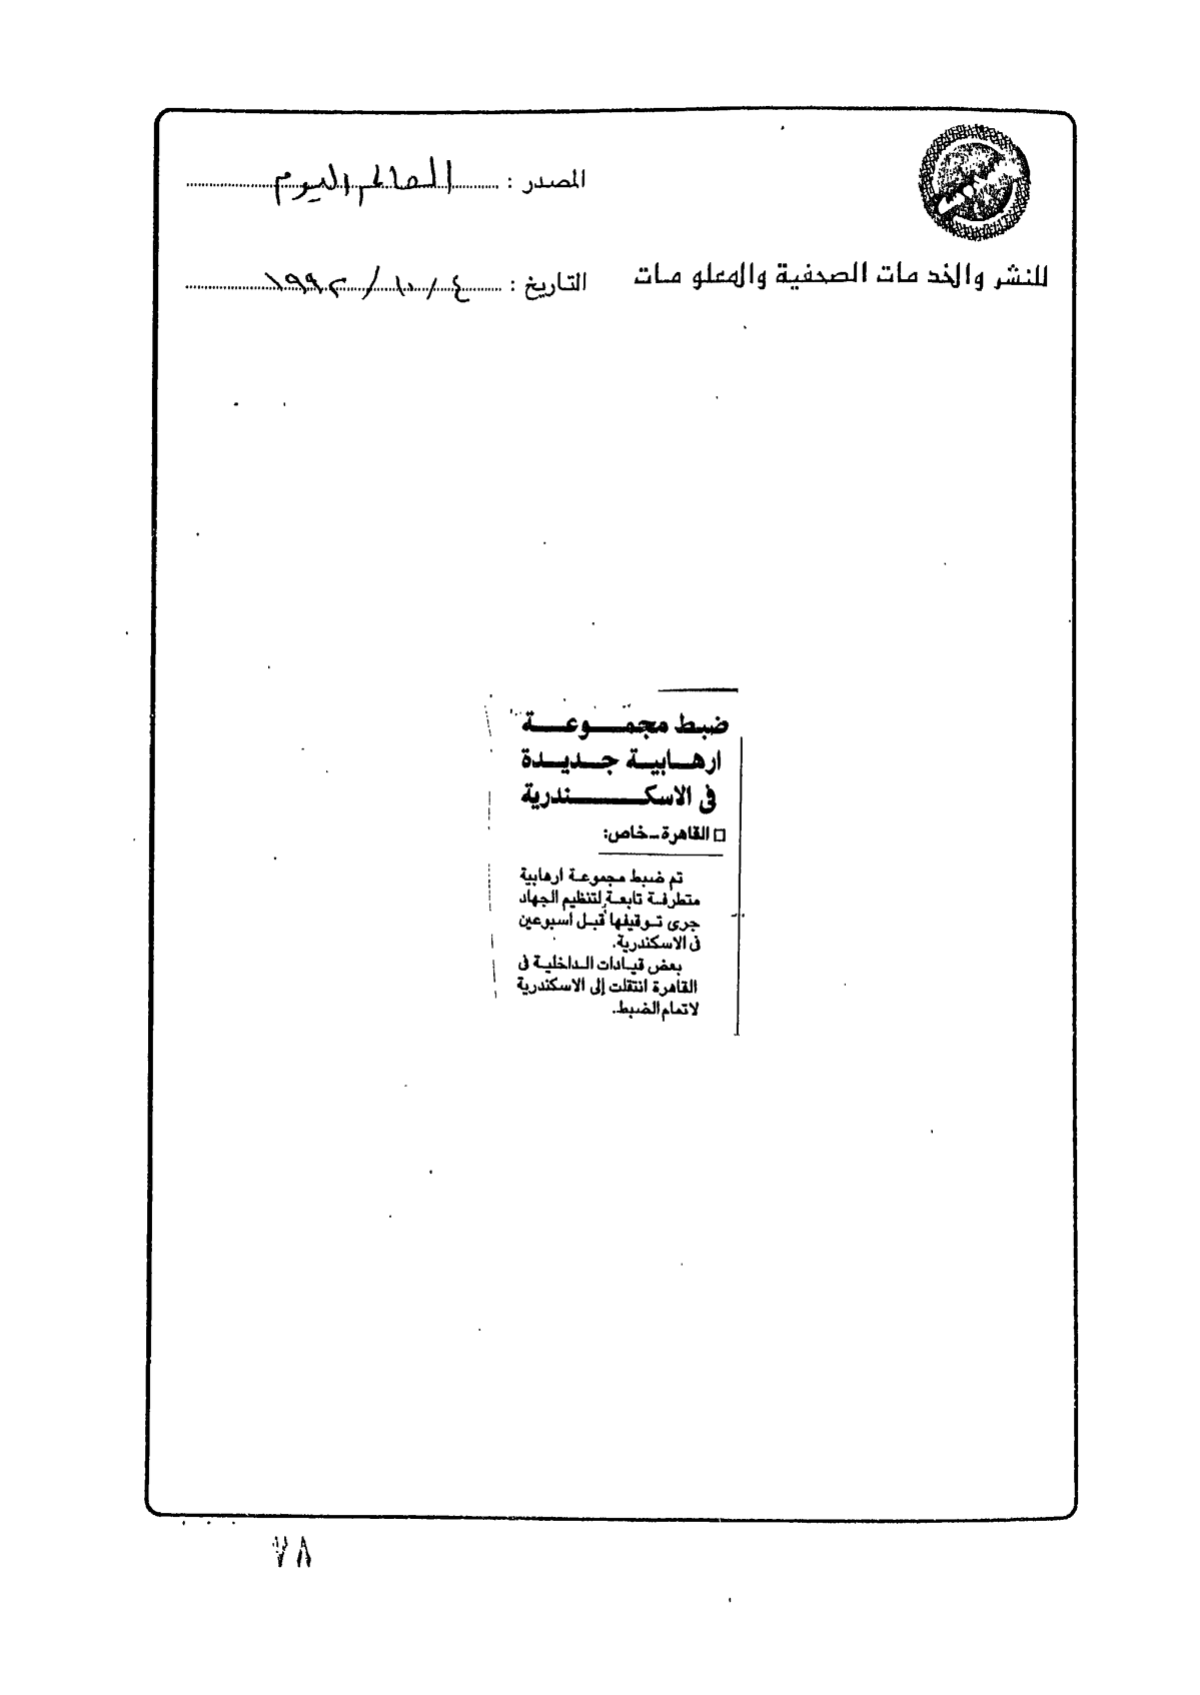 المصدر : العالم اليوم
للنشر والخدمات الصحفية والمعلومات
التاريخ : ٤ / ١٠ / ١٩٩٢
ضبط مجموعة
ارهابية جديدة
فى الاسكندرية
□ القاهرة - خاص:
تم ضبط مجموعة ارهابية
متطرفة تابعة لتنظيم الجهاد
جرى توقيفها قبل اسبوعين
فى الاسكندرية.
بعض قيادات الداخلية فى
القاهرة انتقلت إلى الاسكندرية
لاتمام الضبط.
٧٨